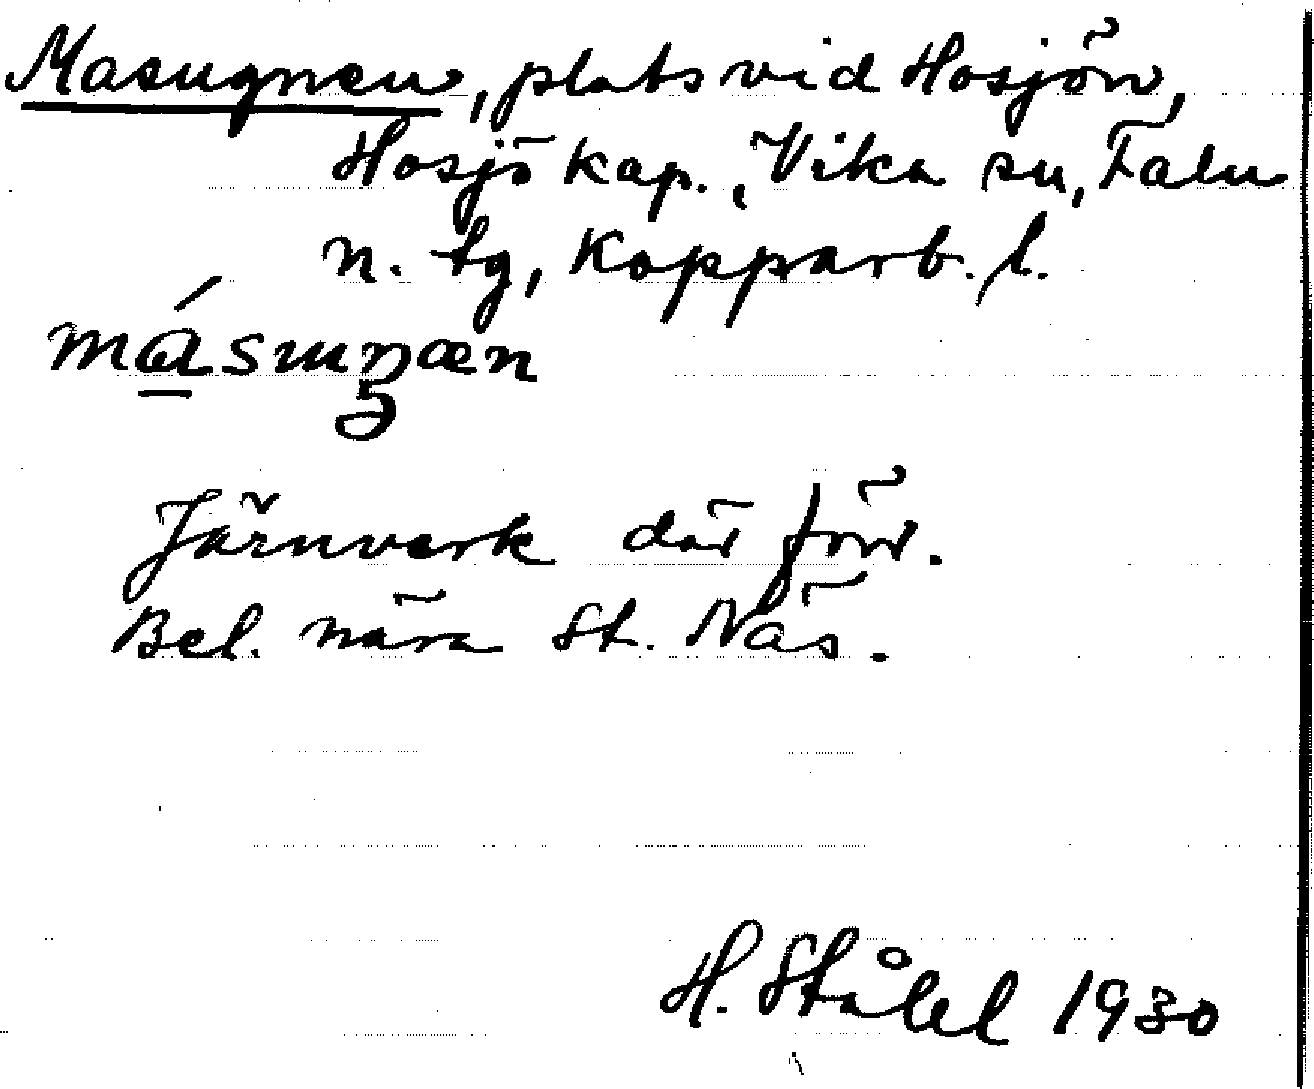 Masugnen, plats vid Hosjön,
Hosjö kap., Vika sn, Falu
n. tg, Kopparb. l.
Järnverk där förr.
Bel. nära St. Näs.
H. Ståhl 1930